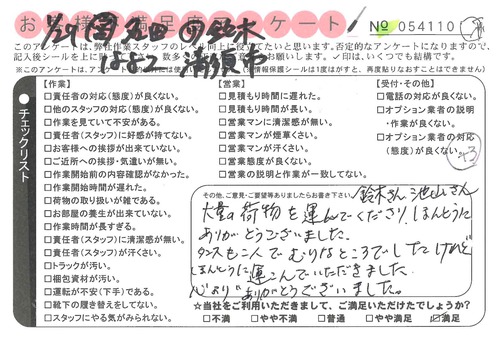 お客様満足度アンケート
№ 054110
このアンケートは、弊社作業スタッフのレベル向上に役立てたいと思います。否定的なアンケートになりますので、
記入後シールを上に
印は、いくつでも結構です。
情報保護シールは1度はがすと、再度貼りなおすことはできません)
チェックリスト
【作業】
□責任者の対応(態度)が良くない。
□他のスタッフの対応(態度)が良くない。
□作業を見ていて不安がある。
□責任者(スタッフ)に好感が持てない。
□お客様への挨拶が出来ていない。
□ご近所への挨拶・気遣いが無い。
□作業開始前の内容確認がなかった。
□作業開始時間が遅れた。
□荷物の取り扱いが雑である。
□お部屋の養生が出来ていない。
□作業時間が長すぎる。
□責任者(スタッフ)に清潔感が無い。
□責任者(スタッフ)が汗くさい。
□トラックが汚い。
□梱包資材が汚い。
□運転が不安(下手)である。
□靴下の履き替えをしてない。
□スタッフにやる気がみられない。
【営業】
□見積もり時間に遅れた。
□見積もり時間が長い。
□営業マンに清潔感が無い。
□営業マンが煙草くさい。
□営業マンが汗くさい。
□営業態度が良くない。
□営業の説明と作業が一致してない。
【受付・その他】
□電話の対応が良くない。
□オプション業者の説明
・作業が良くない。
□オプション業者の対応
(態度)が良くない。
その他、ご意見・ご要望等ありましたらお書き下さい。
鈴木さん 池山さん
大量の荷物を運んでくださり、ほんとうに
ありがとうございました。
タンスも二人でむりなところでしたけれど
ほんとうに運こんでいただきました
心よりありがとうございました。
☆当社をご利用いただきまして、ご満足いただけたでしょうか?
□不満 □やや不満 □普通 □やや満足 ☑満足